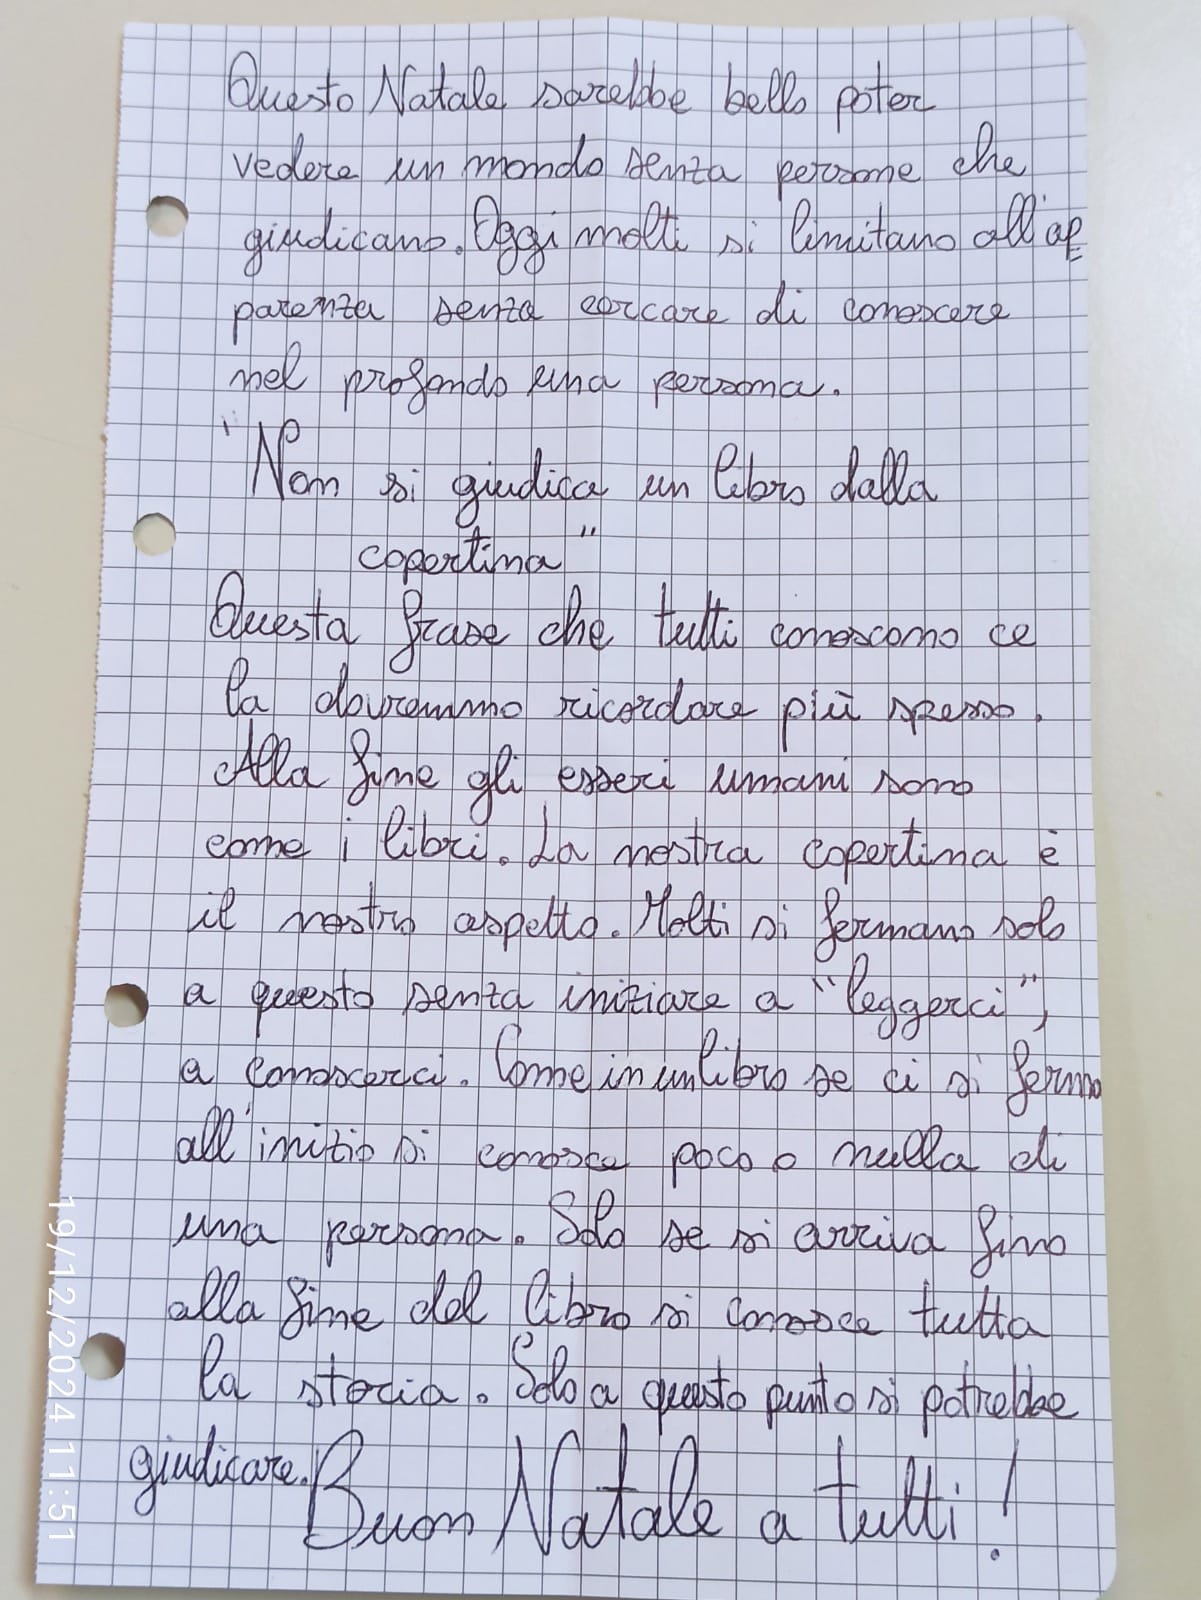 Questo Natale sarebbe bello poter
vedere un mondo senza persone che
giudicano. Oggi molti si limitano all'ap
parenza senza cercare di conoscere
nel profondo una persona.
"Non si giudica un libro dalla
copertina"
Questa frase che tutti conoscono ce
la dovremmo ricordare più spesso.
Alla fine gli esseri umani sono
come i libri. La nostra copertina è
il nostro aspetto. Molti si fermano solo
a questo senza iniziare a "leggerci",
a conoscerci. Come in un libro se ci si ferma
all'inizio si conosce poco o nulla di
una persona. Solo se si arriva fino
alla fine del libro si conosce tutta
la storia. Solo a questo punto si potrebbe
giudicare. Buon Natale a tutti!
19/12/2024 11:51